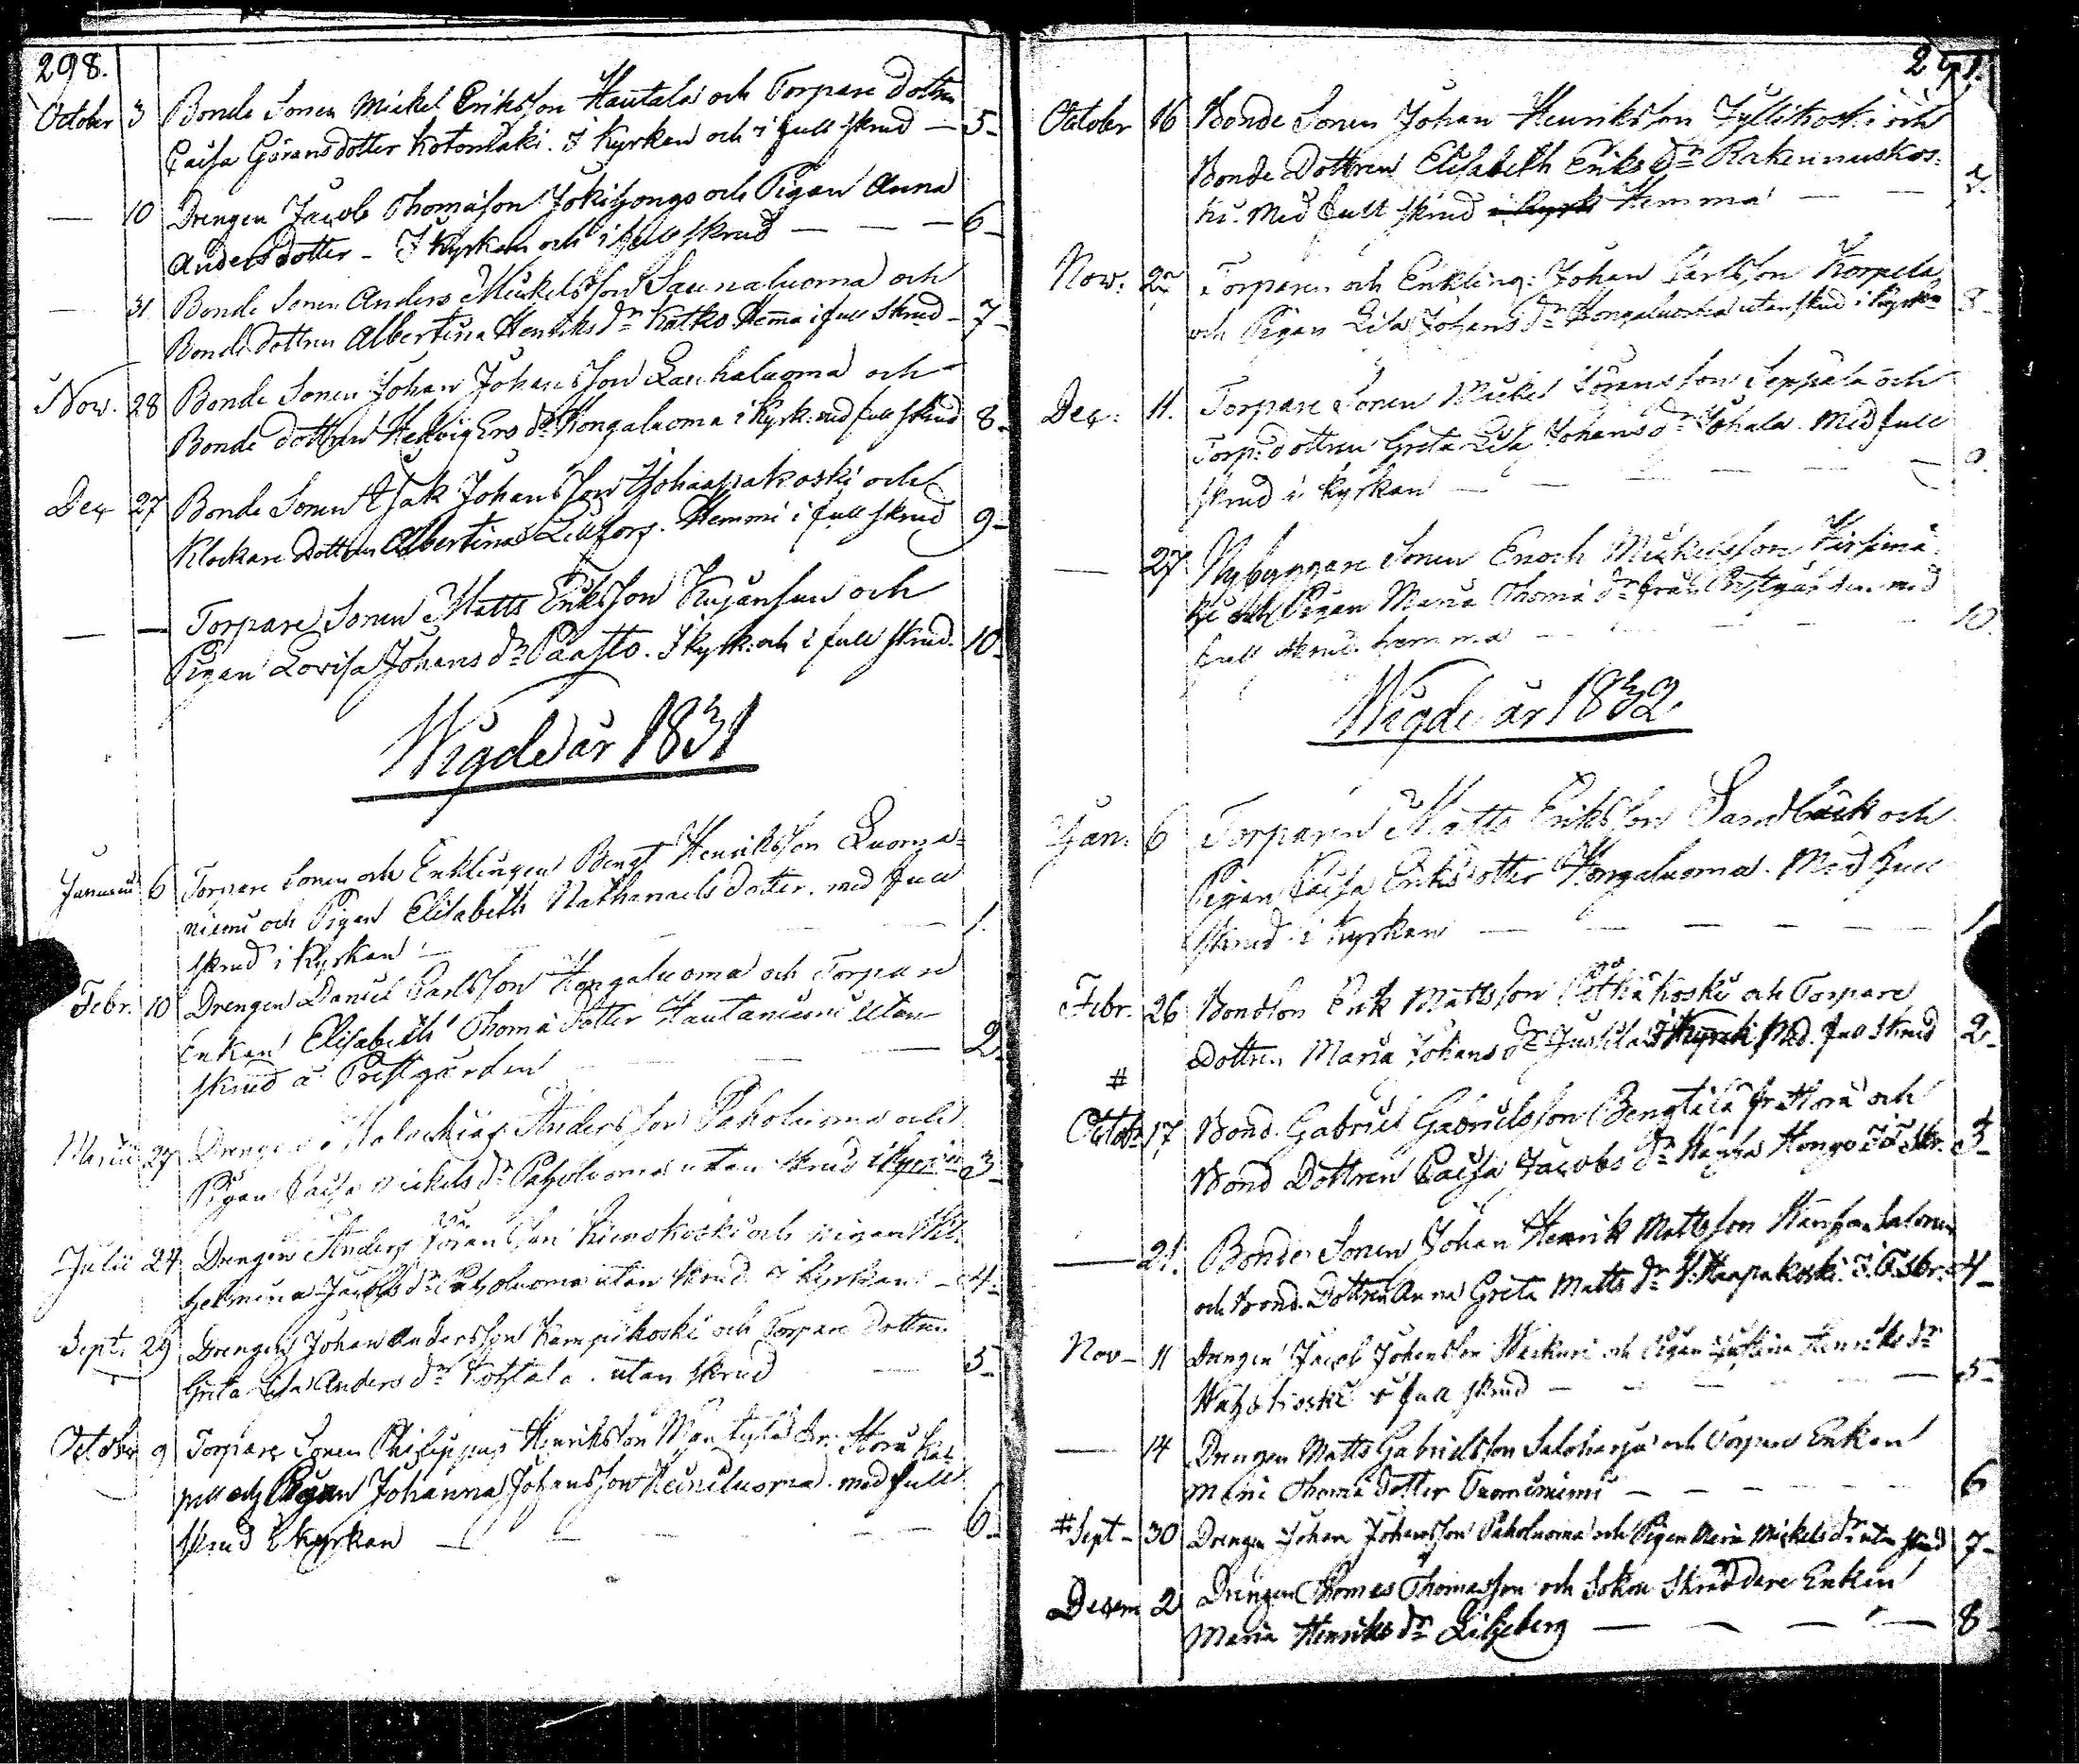 298.
October 3 Bonde Sonen Mickel Eriksson Hautala och Torpare dottren
Caisa Göransdotter Kotomäki. I Kyrkan och i full skrud — 5
— 10 Drengen Jacob Thomasson Jokihongo och Pigan Anna
Andersdotter – I Kyrkan och i full skrud — — — 6
— 31 Bonde Sonen Anders Mickelsson Saunaluoma och
Bonde dottren Albertina Henriksdr Katko Hema i full skrud – 7
Nov. 28 Bonde Sonen Johan Johansson Lauhaluoma och
Bonde dottren Hedvig Ers dr Hongaluoma i Kyrk: med full skrud 8
Dec 27 Bonde Sonen Isak Johansson Yhaapakoski och
Klockare Dottren Albertina Lillfors. Hemma i full skrud 9
— — Torpare Sonen Matts Eriksson Kujansuu och
Pigan Lovisa Johans dr Paasto. I kyrk: och i full skrud. 10
Wigde år 1831
Januarii 6 Torpare Sonen och Enklingen Bengt Henriksson Luoma=
niemi och Pigan Elisabeth Nathanaels dotter. med full
skrud i Kyrkan — — — 1.
Febr. 10 Drengen Daniel Carlsson Hongaluoma och Torpare
Enkan Elisabeth Thomä dotter Hautaniemi utan
skrud å Prestgården — — 2.
Martii 27 Drengen Malachias Andersson Paholuoma och
Pigan Caisa Mickels dr Paholuoma utan skrud i Kyrkan 3
Julii 24 Drengen Anders Göransson och Pigan Wil=
helmina Jacobs dr Paholuoma utan skrud i Kyrkan – 4
Sept. 29 Drengen Johan Andersson Kampikoski och Torpare dottren
Greta Lisa Anders dr Kohtala. utan skrud — 5
October 9 Torpare Sonen Philippus Henriksson Mäntylä fr: Storå Kap
pell och Pigan Johanna Johansson Heiniluoma. med full
skrud i Kyrkan — — — — 6
291.
October 16 Bonde Sonen Johan Henriksson Jyllikoski och
Bonde Dottren Elisabeth Eriks dr Rakennuskos=
ki. Med full skrud i Kyrk Hemma — — 7.
Nov: 27 Torparen och Enkling: Johan Carlsson Korpela
och Pigan Lisa Johans dr Hongaluoma utan skrud i Kyrka 8
Dec: 11. Torpare Sonen Mickel Göransson Seppälä och
Torp: dottren Greta Lisa Johans dr Johala. Med full
skrud i kyrkan — — — — 9.
— 27 Nybyggare Sonen Enoch Mickelsson
och Pigan Maria Thomä dr från Prestgården. med
full skrud. hemma — — — 10.
Wigde år 1832.
Jan: 6 Torparen Matts Eriksson Sandbäck och
Pigan Caisa Eriksdotter Hongaluoma. Med full
skrud i Kyrkan — — — — 1
Febr. 26 Bondson Erik Mattsson Pitkäkoski och Torpare
dottren Maria Johans dr Jussila i Kyrk: Med. full skrud 2
#
Octobr 17 Bond. Gabriel Gabrielsson Bengtilä fr. Storå och
Bond Dottren Caisa Jacobs dr Hongo I. F. Skr. 3
— 21. Bonde Sonen Johan Henrik Mattsson
och Bond. Dottren Anna Greta Matts dr Y. Haapakoski. I. F. Skr. 4
Nov – 11 Drengen Jacob Johansson och Pigan Henriks dr
i full skrud — — — — 5
— 14 Drengen Matts Gabrielsson Saloharju och Torpare Enkan
Thomä dotter Tuominiemi — — — — 6
# Sept – 30 Drengen Johan Johansson Paholuoma och Pigan Maria Mickels dr utan skrud 7
Decem 2 Drengen Thomas Thomasson och Sokne Skräddare Enkan
Maria Henriks dr Liljeberg — — — — 8